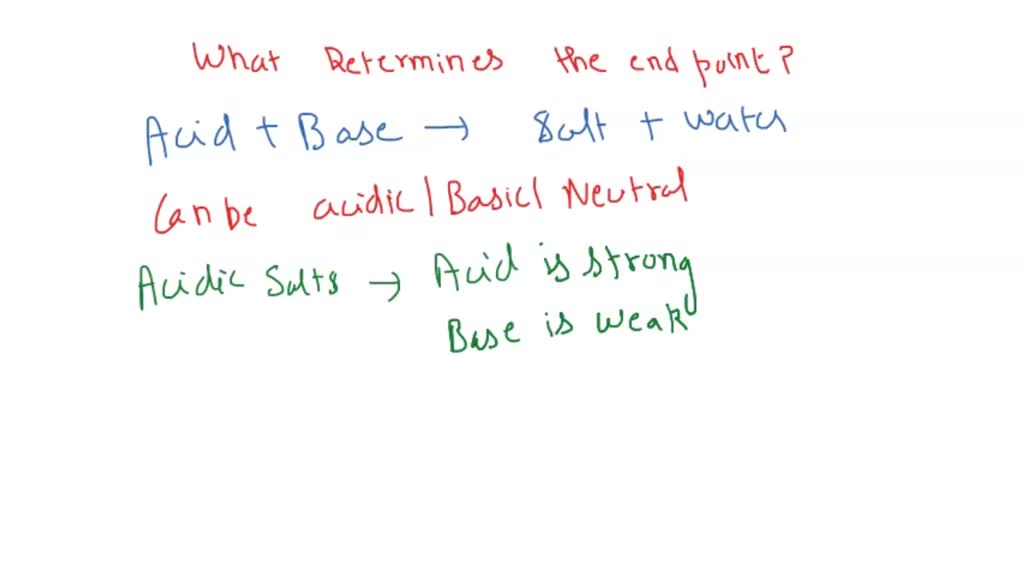 What Determines the end point?
Acid + Base → Salt + water
Can be acidic | Basic | Neutral
Acidic Salts → Acid is strong
Base is weak